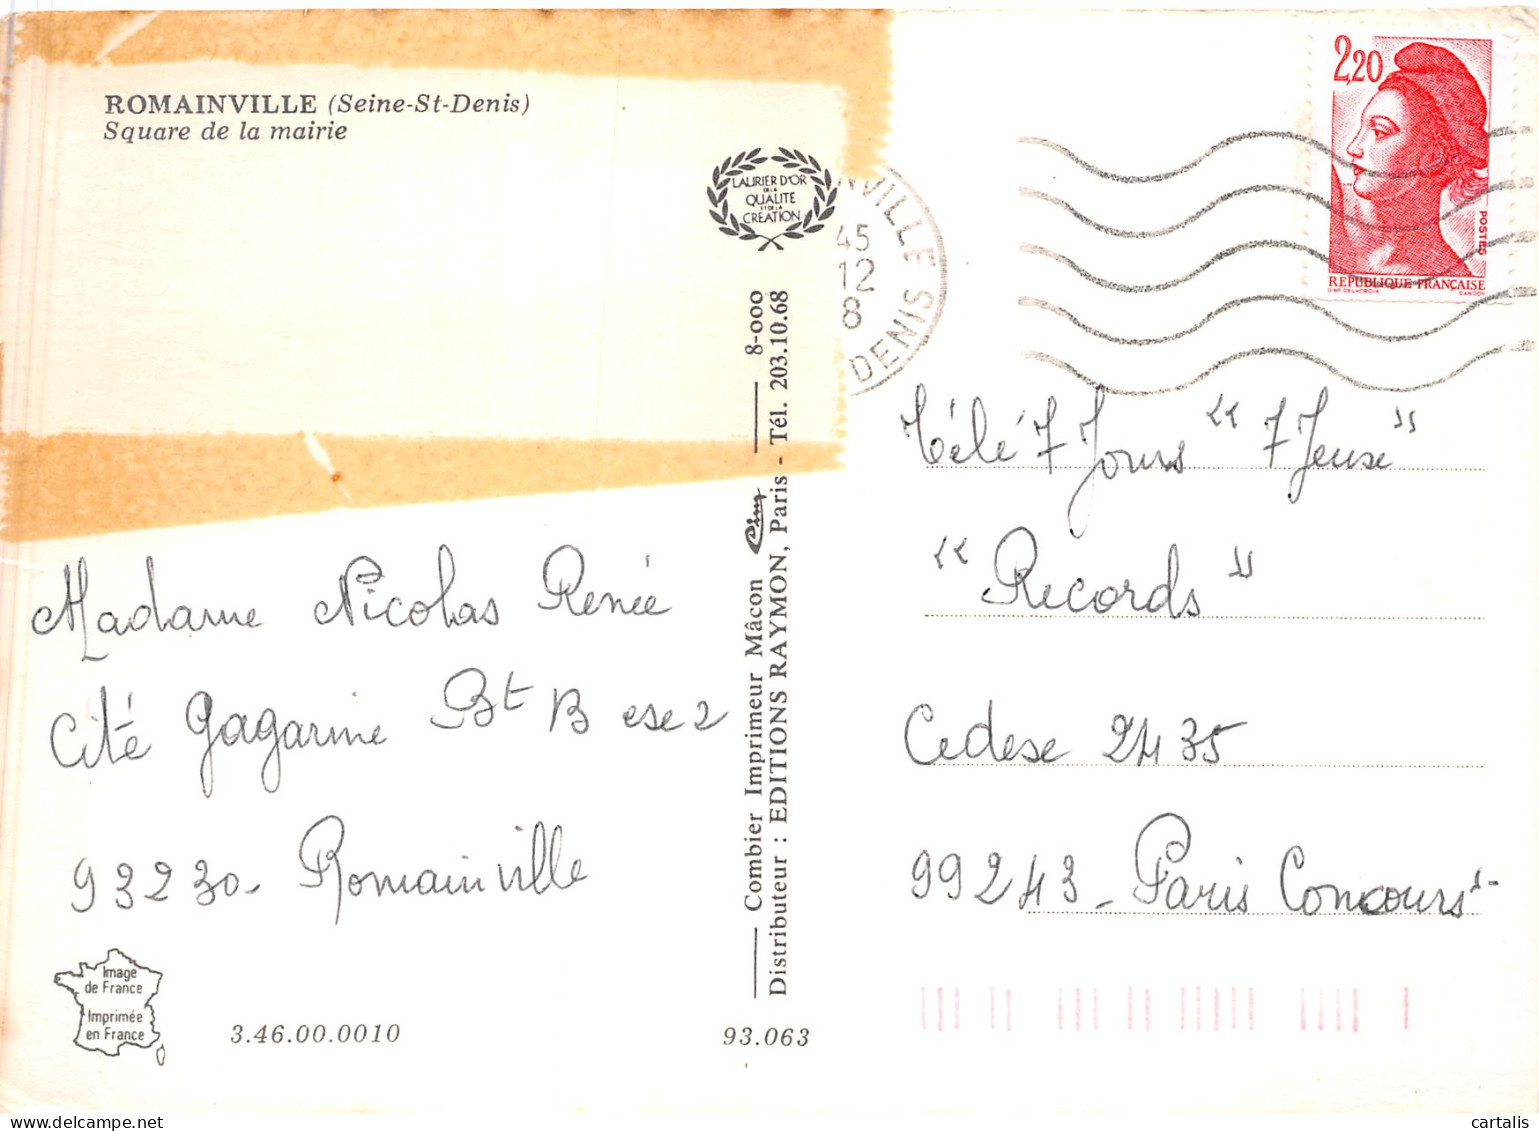 ROMAINVILLE (Seine-St-Denis)
Square de la mairie
LAURIER D'OR
DE LA
QUALITE
ET DE LA
CREATION
NVILLE
45
12
8
DENIS
2,20
POSTES
REPUBLIQUE FRANÇAISE
D'AP. DELACROIX GANDON
Combier Imprimeur Mâcon Cim 8-000
Distributeur : EDITIONS RAYMON, Paris - Tél. 203.10.68
Madame Nicolas Renée
Cité Gagarine Bt B esc 2
93230- Romainville
Télé 7 Jours "7 Jeux"
"Records"
Cedex 2435
99243 - Paris Concours-
Image
de France
Imprimée
en France
3.46.00.0010
93.063
cartalis